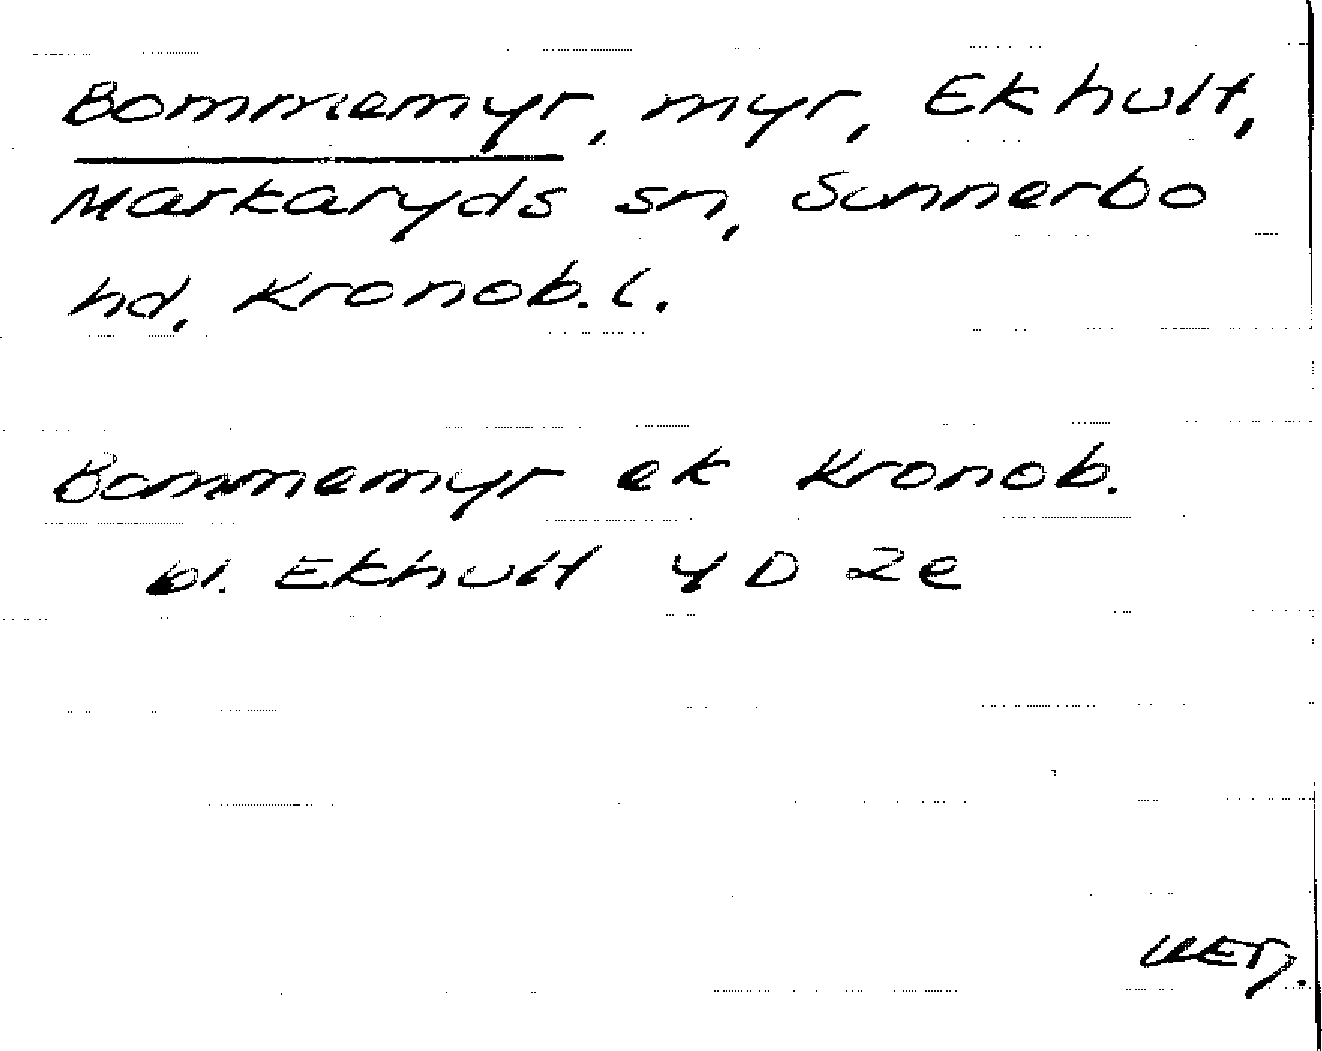 Bommemyr, myr, Ekhult,
Markaryds sn, Sunnerbo
hd, Kronob. l.
Bommemyr ek Kronob.
bl. Ekhult 4 D 2e